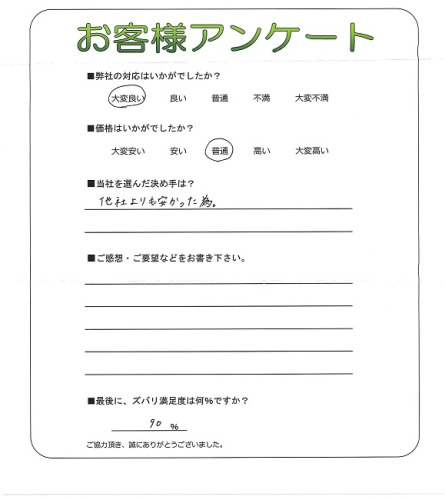 お客様アンケート
■弊社の対応はいかがでしたか？
大変良い 良い 普通 不満 大変不満
■価格はいかがでしたか？
大変安い 安い 普通 高い 大変高い
■当社を選んだ決め手は？
他社よりも安かった為。
■ご感想・ご要望などをお書き下さい。
■最後に、ズバリ満足度は何%ですか？
90 %
ご協力頂き、誠にありがとうございました。